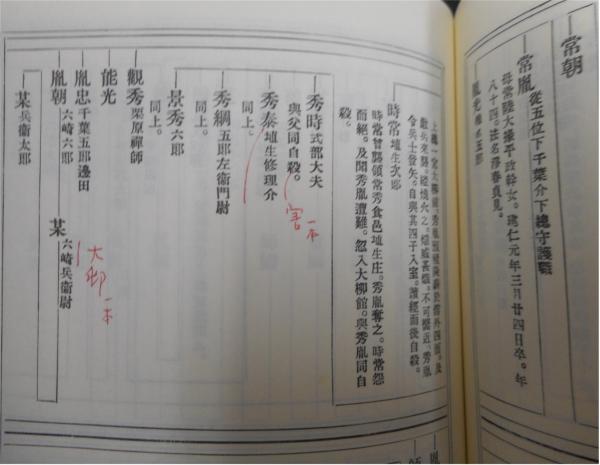 常朝
常胤 從五位下千葉介下總守護職
母常陸大掾平政幹女。建仁元年三月廿四日卒。年
八十四。法名淨春貞見。
胤光 椎名五郎
令兵士發矢。自與其四子入室。讀經而後自殺。
時常 埴生次郎
時常曾襲領常秀食邑埴生庄。秀胤奪之。時常怨
而絕。及聞秀胤遭難。忽入大柳館。與秀胤同自
殺。
秀時 式部大夫
與父同自殺。
害一本
秀泰 埴生修理介
同上。
秀綱 五郎左衞門尉
同上。
景秀 六郎
同上。
觀秀 栗原禪師
能光
胤忠 千葉五郎邊田
胤朝 六崎六郎
某 六崎兵衞尉
大郎一本
某 兵衞太郎